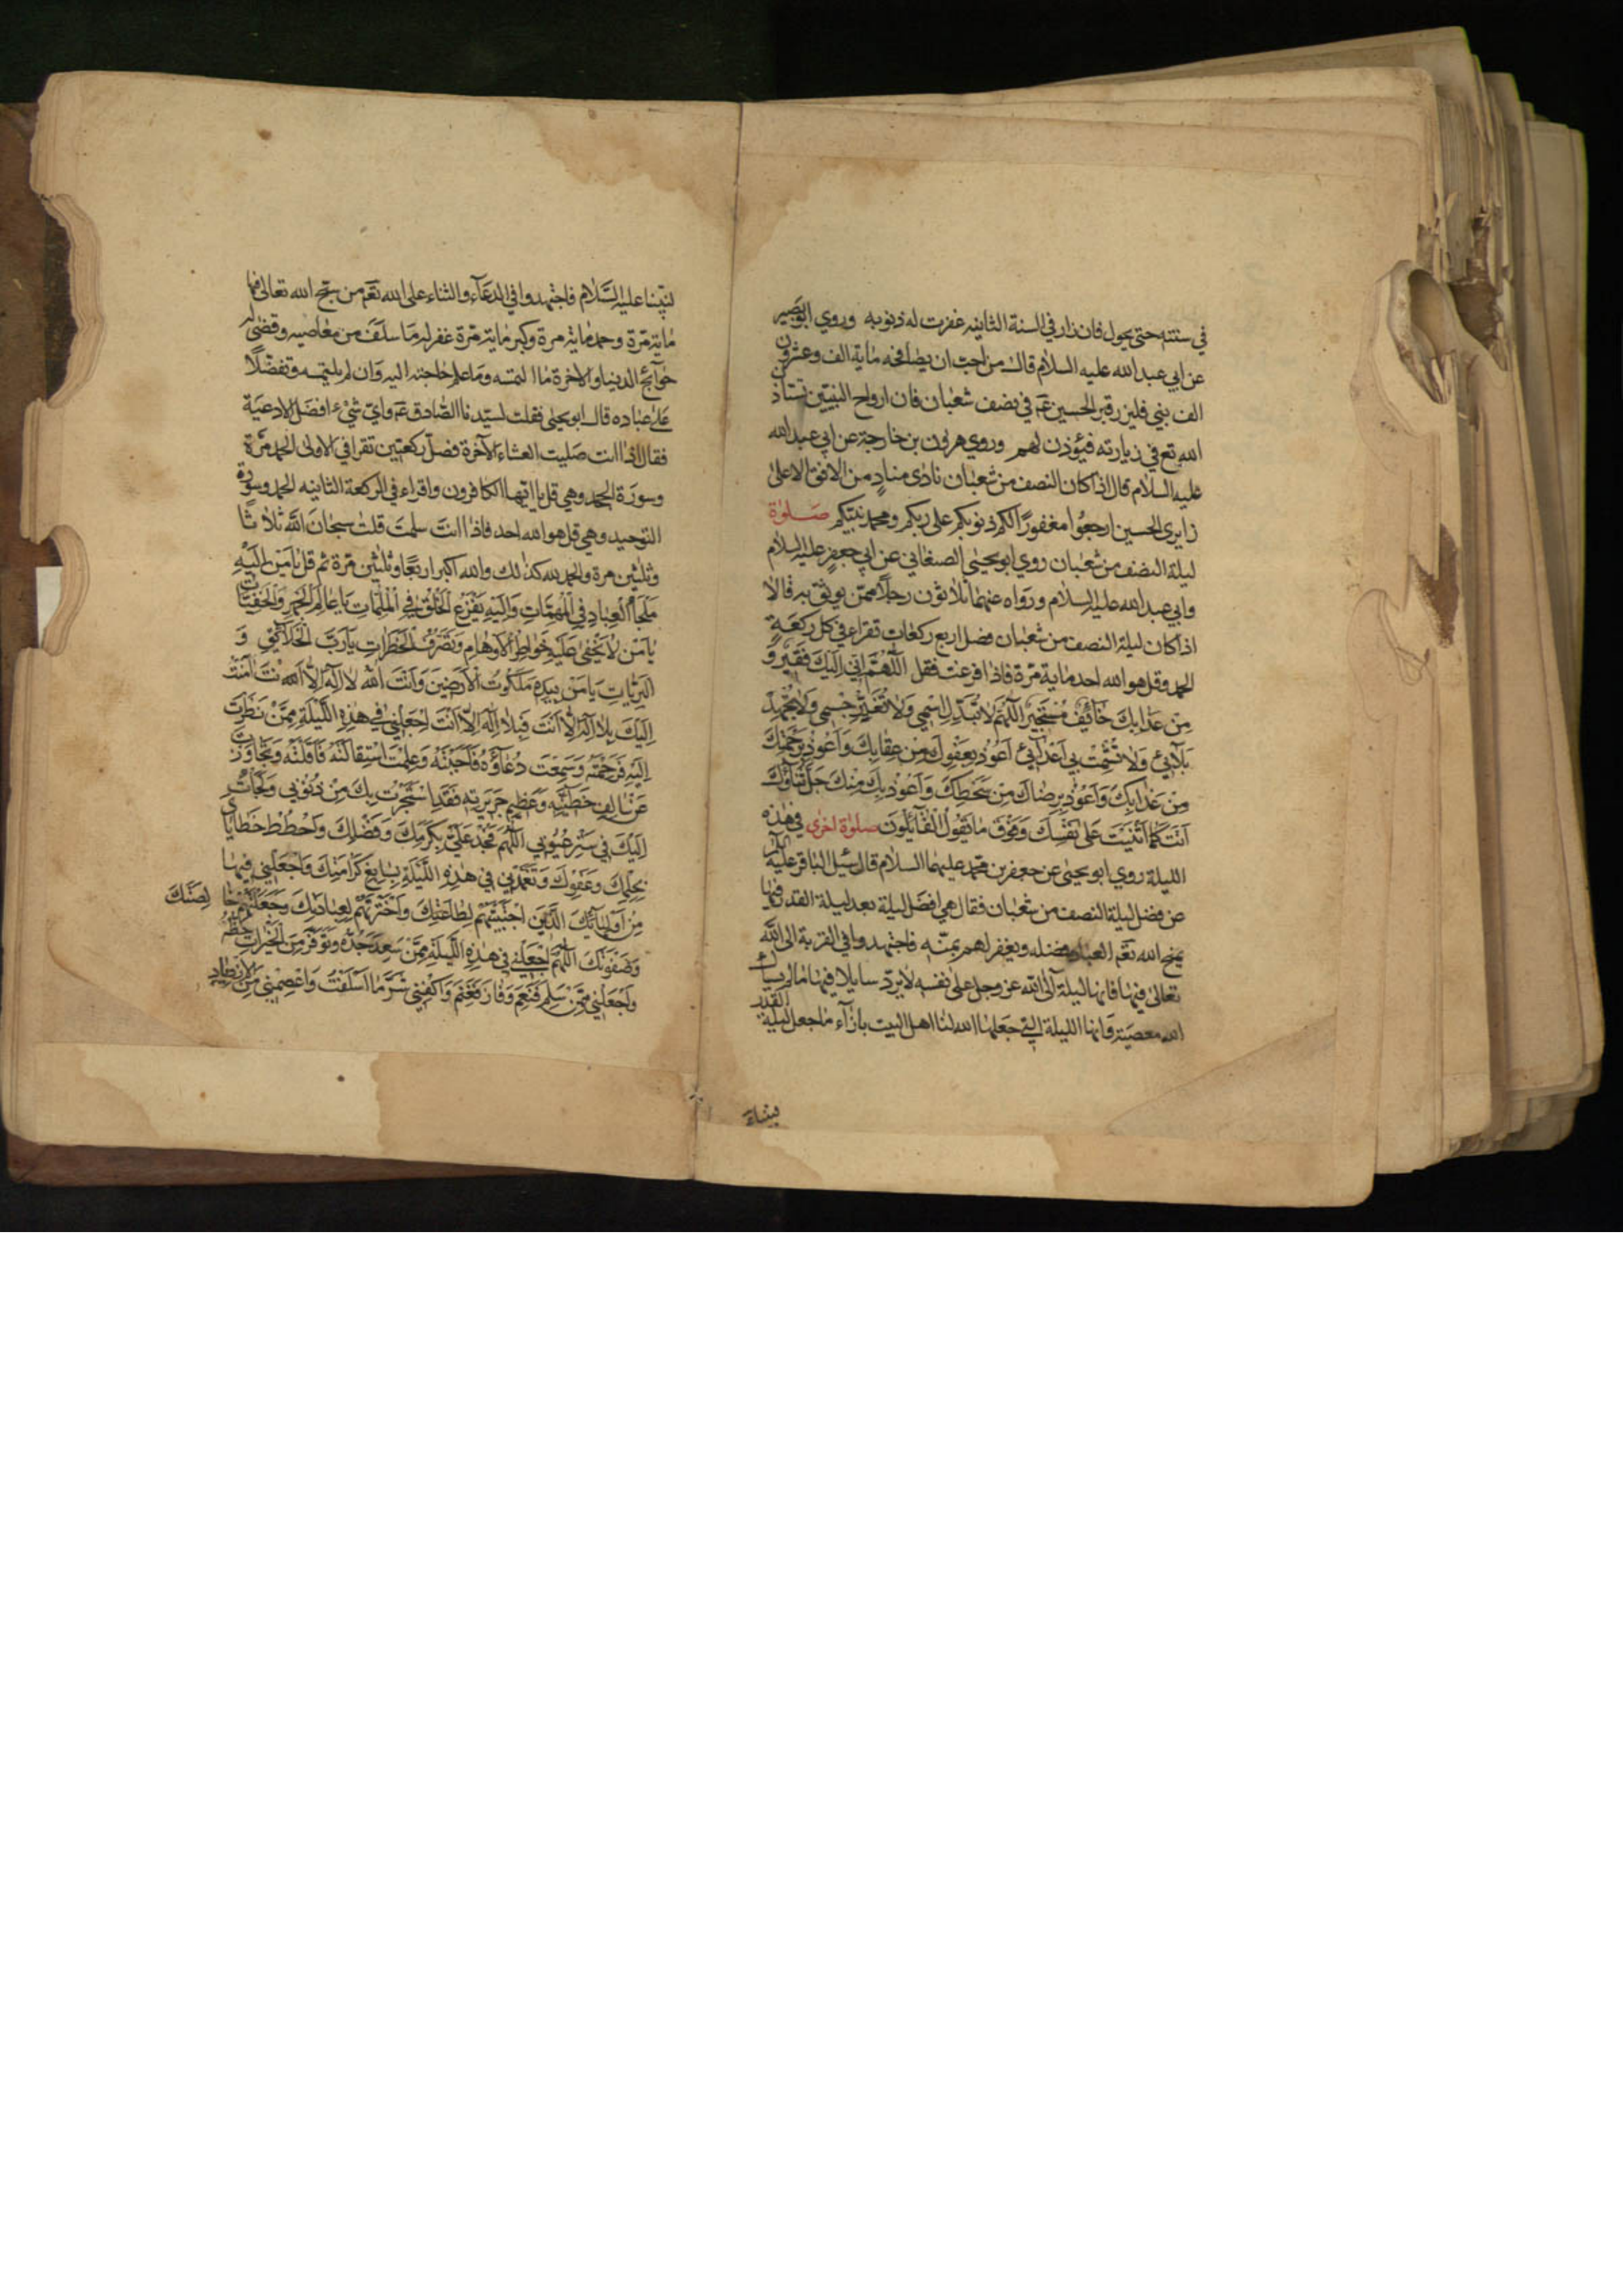 في سنته حتى يحول فان زار في السنة الثانيه غفرت له ذنوبه وروي ابوبصير
عن ابي عبد الله عليه السلام قال من احب ان يصافحه ماية الف وعشرون
الف نبي فليزر قبر الحسين عم في نصف شعبان فان ارواح النبيين تستاذن
الله تع في زيارته فيؤذن لهم وروي هرون بن خارجة عن ابي عبد الله
عليه السلام قال اذا كان النصف من شعبان نادى مناد من الافق الاعلى
زايري الحسين ارجعوا مغفورا لكم ذنوبكم على ربكم ومحمد نبيكم صلوة
ليلة النصف من شعبان روي ابو يحيى الصنعاني عن ابي جعفر عليه السلام
وابي عبد الله عليه السلام ورواه عنهما ثلاثون رجلا ممن يوثق به قالا
اذا كان ليلة النصف من شعبان فصل اربع ركعات تقراء في كل ركعة
الحمد وقل هو الله احد ماية مرة فاذا فرغت فقل اللهم اني اليك فقير و
من عذابك خائف مستجير اللهم لا تبدل اسمي ولا تغير جسمي ولا تجهد
بلائي ولا تشمت بي اعدائي اعوذ بعفوك من عقابك واعوذ برحمتك
من عذابك واعوذ برضاك من سخطك واعوذ بك منك جل ثناؤك
انت كما اثنيت على نفسك وفوق ما تقول القائلون صلوة اخرى في هذه
الليلة روي ابو يحيى عن جعفر بن محمد عليهما السلام قال سئل الباقر عليه السلام
عن فضل ليلة النصف من شعبان فقال هي افضل ليلة بعد ليلة القدر فيها
يمنح الله تعم العباد فضله ويغفر لهم بمنه فاجتهدوا في القربة الى الله
تعالى فيها فانها ليلة آلى الله عز وجل على نفسه لا يرد سايلا فيها ما لم يسأل
الله معصية وانها الليلة التي جعلها الله لنا اهل البيت بازآء ما جعل ليلة القدر
لنبينا عليه السلام فاجتهدوا في الدعآء والثناء على الله تعم من سبح الله تعالى فيها
ماية مرة وحمد ماية مرة وكبر ماية مرة غفر له ما سلف من معاصيه وقضى له
حوآئج الدنيا والاخرة ما التمسه وما علم حاجته اليه وان لم يلتمسه وتفضلا
على عباده قال ابو يحيى فقلت لسيدنا الصادق عم واي شيء افضل الادعية
فقال اذا انت صليت العشاء الآخرة فصل ركعتين تقرا في الاولى الحمد مرة
وسورة الجحد وهي قل يا ايها الكافرون واقراء في الركعة الثانيه الحمد وسورة
التوحيد وهي قل هو الله احد فاذا انت سلمت قلت سبحان الله ثلاثا
وثلثين مرة والحمد لله كذلك والله اكبر اربعا وثلثين مرة ثم قل يا من اليه
ملجأ العباد في المهمات واليه يفزع الخلق في الملمات يا عالم الجهر والخفيات
يا من لا يخفى عليه خواطر الاوهام وتصرف الخطرات يا رب الخلآئق و
البريات يا من بيده ملكوت الارضين وانت الله لا اله الا انت امت
اليك بلا اله الا انت فبلا اله الا انت اجعلني في هذه الليلة ممن نظرت
اليه فرحمته وسمعت دعاؤه فاجبته وعلمت استقالته فاقلته وتجاوزت
عن سالف خطيئته وعظيم جريرته فقد استجرت بك من ذنوبي ولجأت
اليك في ستر عيوبي اللهم فجد علي بكرمك وفضلك واحطط خطاياي
بحلمك وعفوك وتغمدني في هذه الليلة بسابغ كرامتك واجعلني فيها
من اوليائك الذين اجتبيتهم لطاعتك واخترتهم لعبادتك وجعلتهم خالصتك
وصفوتك اللهم اجعلني في هذه الليلة ممن سعد جده وتوفر من الخيرات حظه
واجعلني ممن سلم فنعم وفاز فغنم واكفني شر ما اسلفت واعصمني من الازدياد